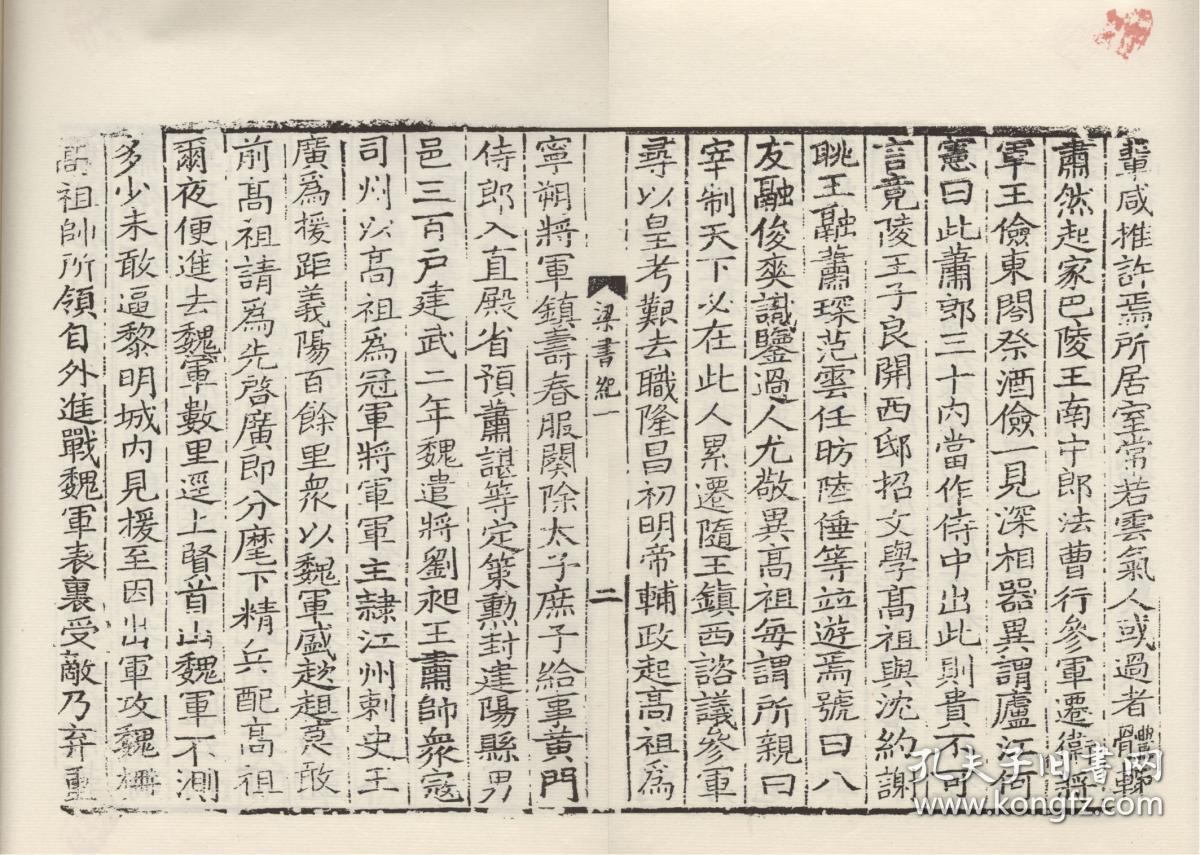 輩咸推許焉所居室常若雲氣人或過者體輙
肅然起家巴陵王南中郎法曹行參軍遷衛將
軍王儉東閤祭酒儉一見深相器異謂廬江何
憲曰此蕭郎三十內當作侍中出此則貴不可
言竟陵王子良開西邸招文學髙祖與沈約謝
眺王融蕭琛范雲任昉陸倕等竝遊焉號曰八
友融俊爽識鑒過人尤敬異髙祖每謂所親曰
宰制天下必在此人累遷隨王鎮西諮議參軍
尋以皇考艱去職隆昌初明帝輔政起髙祖爲
梁書紀一
二
寧朔將軍鎮壽春服闋除太子庶子給事黃門
侍郎入直殿省預蕭諶等定策勳封建陽縣男
邑三百戶建武二年魏遣將劉昶王肅帥衆寇
司州以髙祖爲冠軍將軍軍主隸江州刺史王
廣爲援距義陽百餘里衆以魏軍盛趑趄莫敢
前髙祖請爲先啓廣即分麾下精兵配髙祖
爾夜便進去魏軍數里逕上賢首山魏軍不測
多少未敢逼黎明城內見援至因出軍攻魏柵
髙祖帥所領自外進戰魏軍表裏受敵乃弃重
孔夫子旧书网
www.kongfz.com